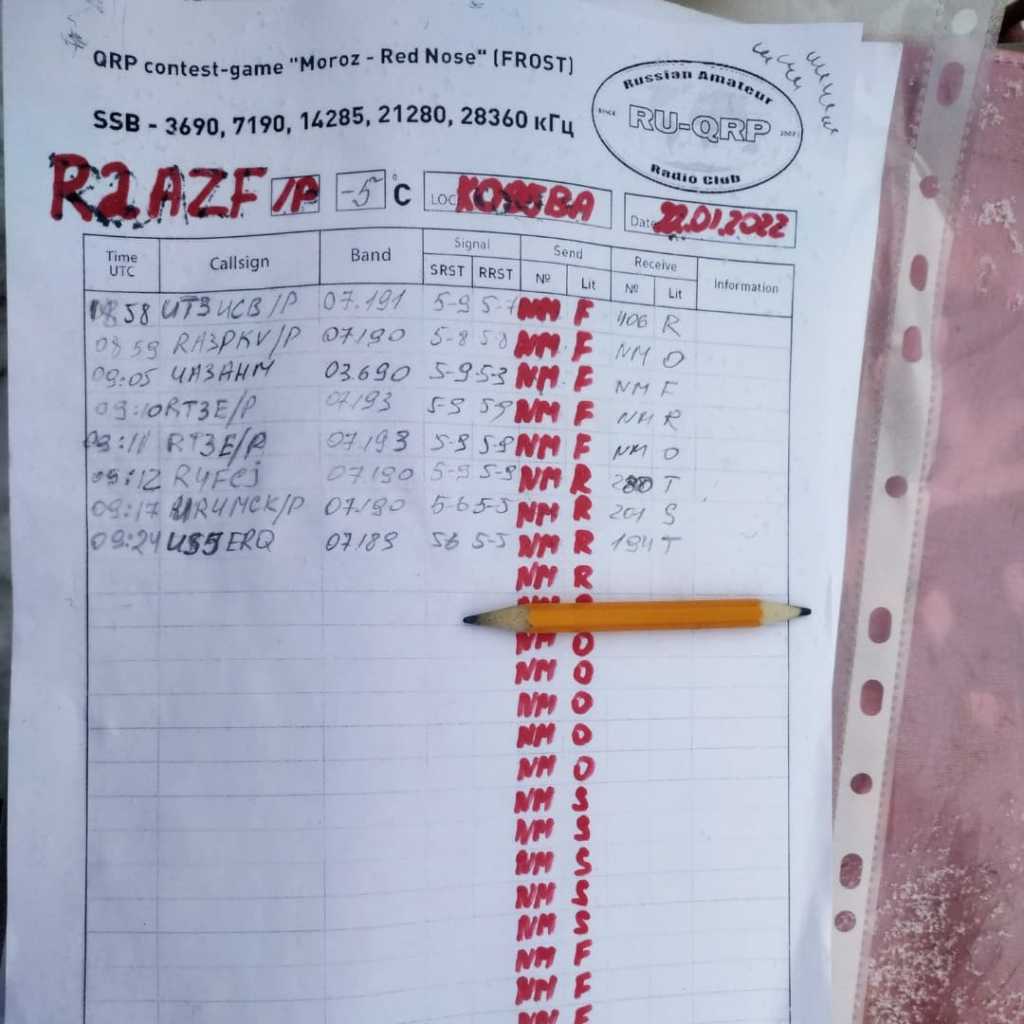 QRP contest-game "Moroz - Red Nose" (FROST)
SSB - 3690, 7190, 14285, 21280, 28360 кГц
Russian Amateur
SINCE RU-QRP 2002
Radio Club
R2AZF /P -5 °C LOC KO85BA Date 22.01.2022
Time UTC Callsign Band Signal Send Receive Information
SRST RRST № Lit № Lit
08 58 UT3UCB/P 07.191 5-9 5-7 NM F 406 R
08 59 RA3PKV/P 07190 5-8 5-8 NM F NM O
09:05 UA3AHM 03.690 5-9 5-3 NM F NM F
09:10 RT3E/P 07193 5-9 59 NM F NM R
09:11 RT3E/P 07.193 5-9 5-9 NM F NM O
09:12 R4FCj 07.190 5-9 5-9 NM R T
09:17 UR4MCK/P 07.190 5-6 5-5 NM R 201 S
09:24 US5ERQ 07.189 56 5-5 NM R 194 T
NM R
NM O
NM O
NM O
NM O
NM O
NM S
NM S
NM S
NM S
NM S
NM F
NM F
NM F